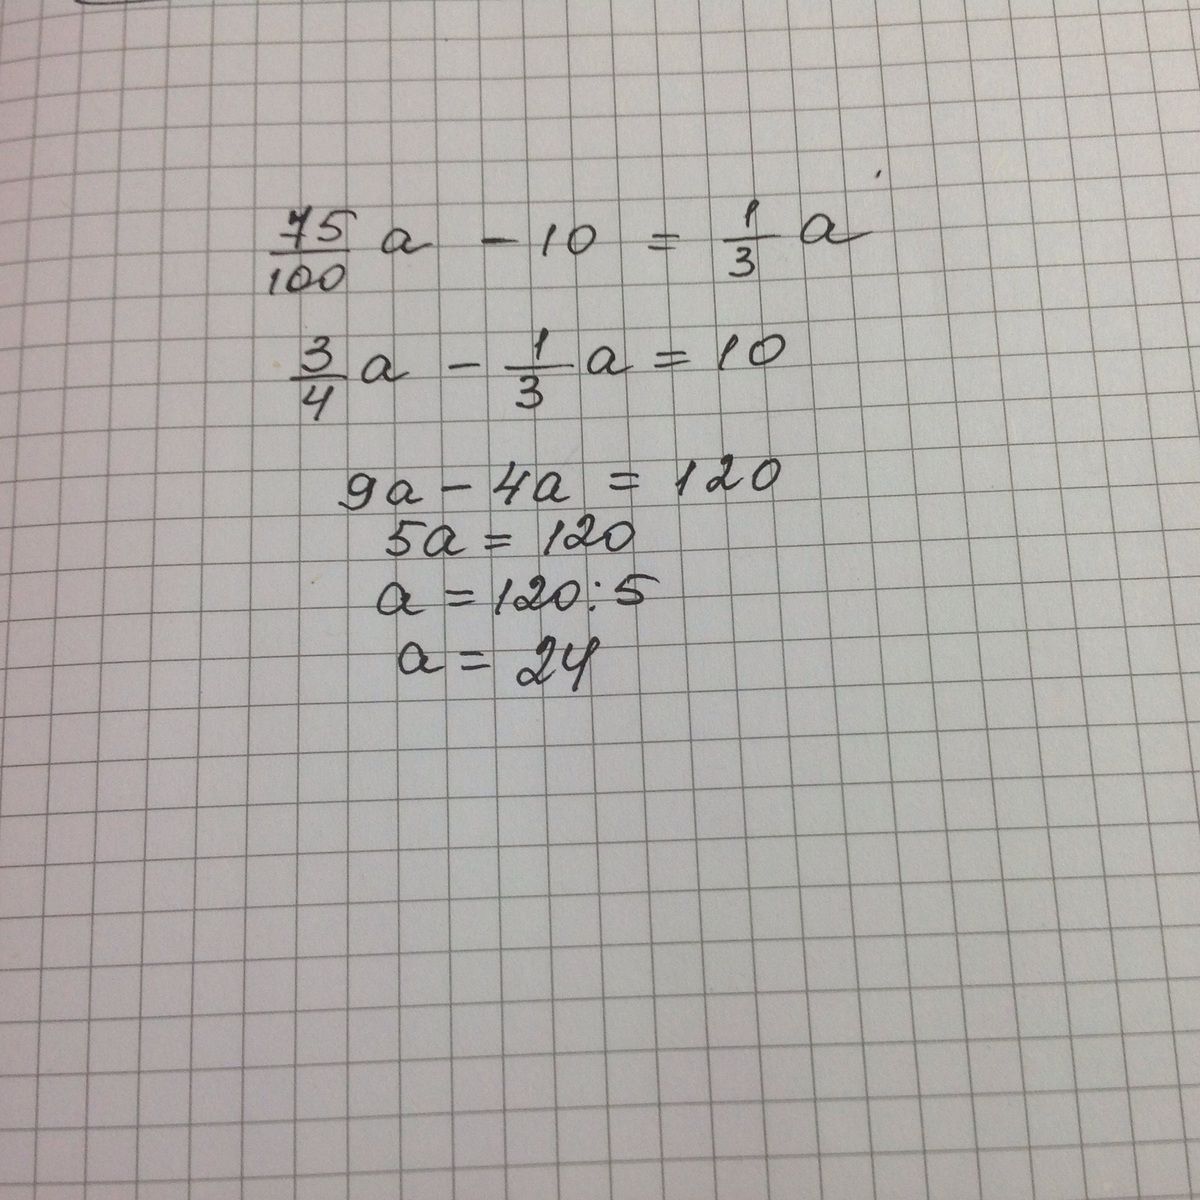 75/100 a - 10 = 1/3 a
3/4 a - 1/3 a = 10
9a - 4a = 120
5a = 120
a = 120:5
a = 24